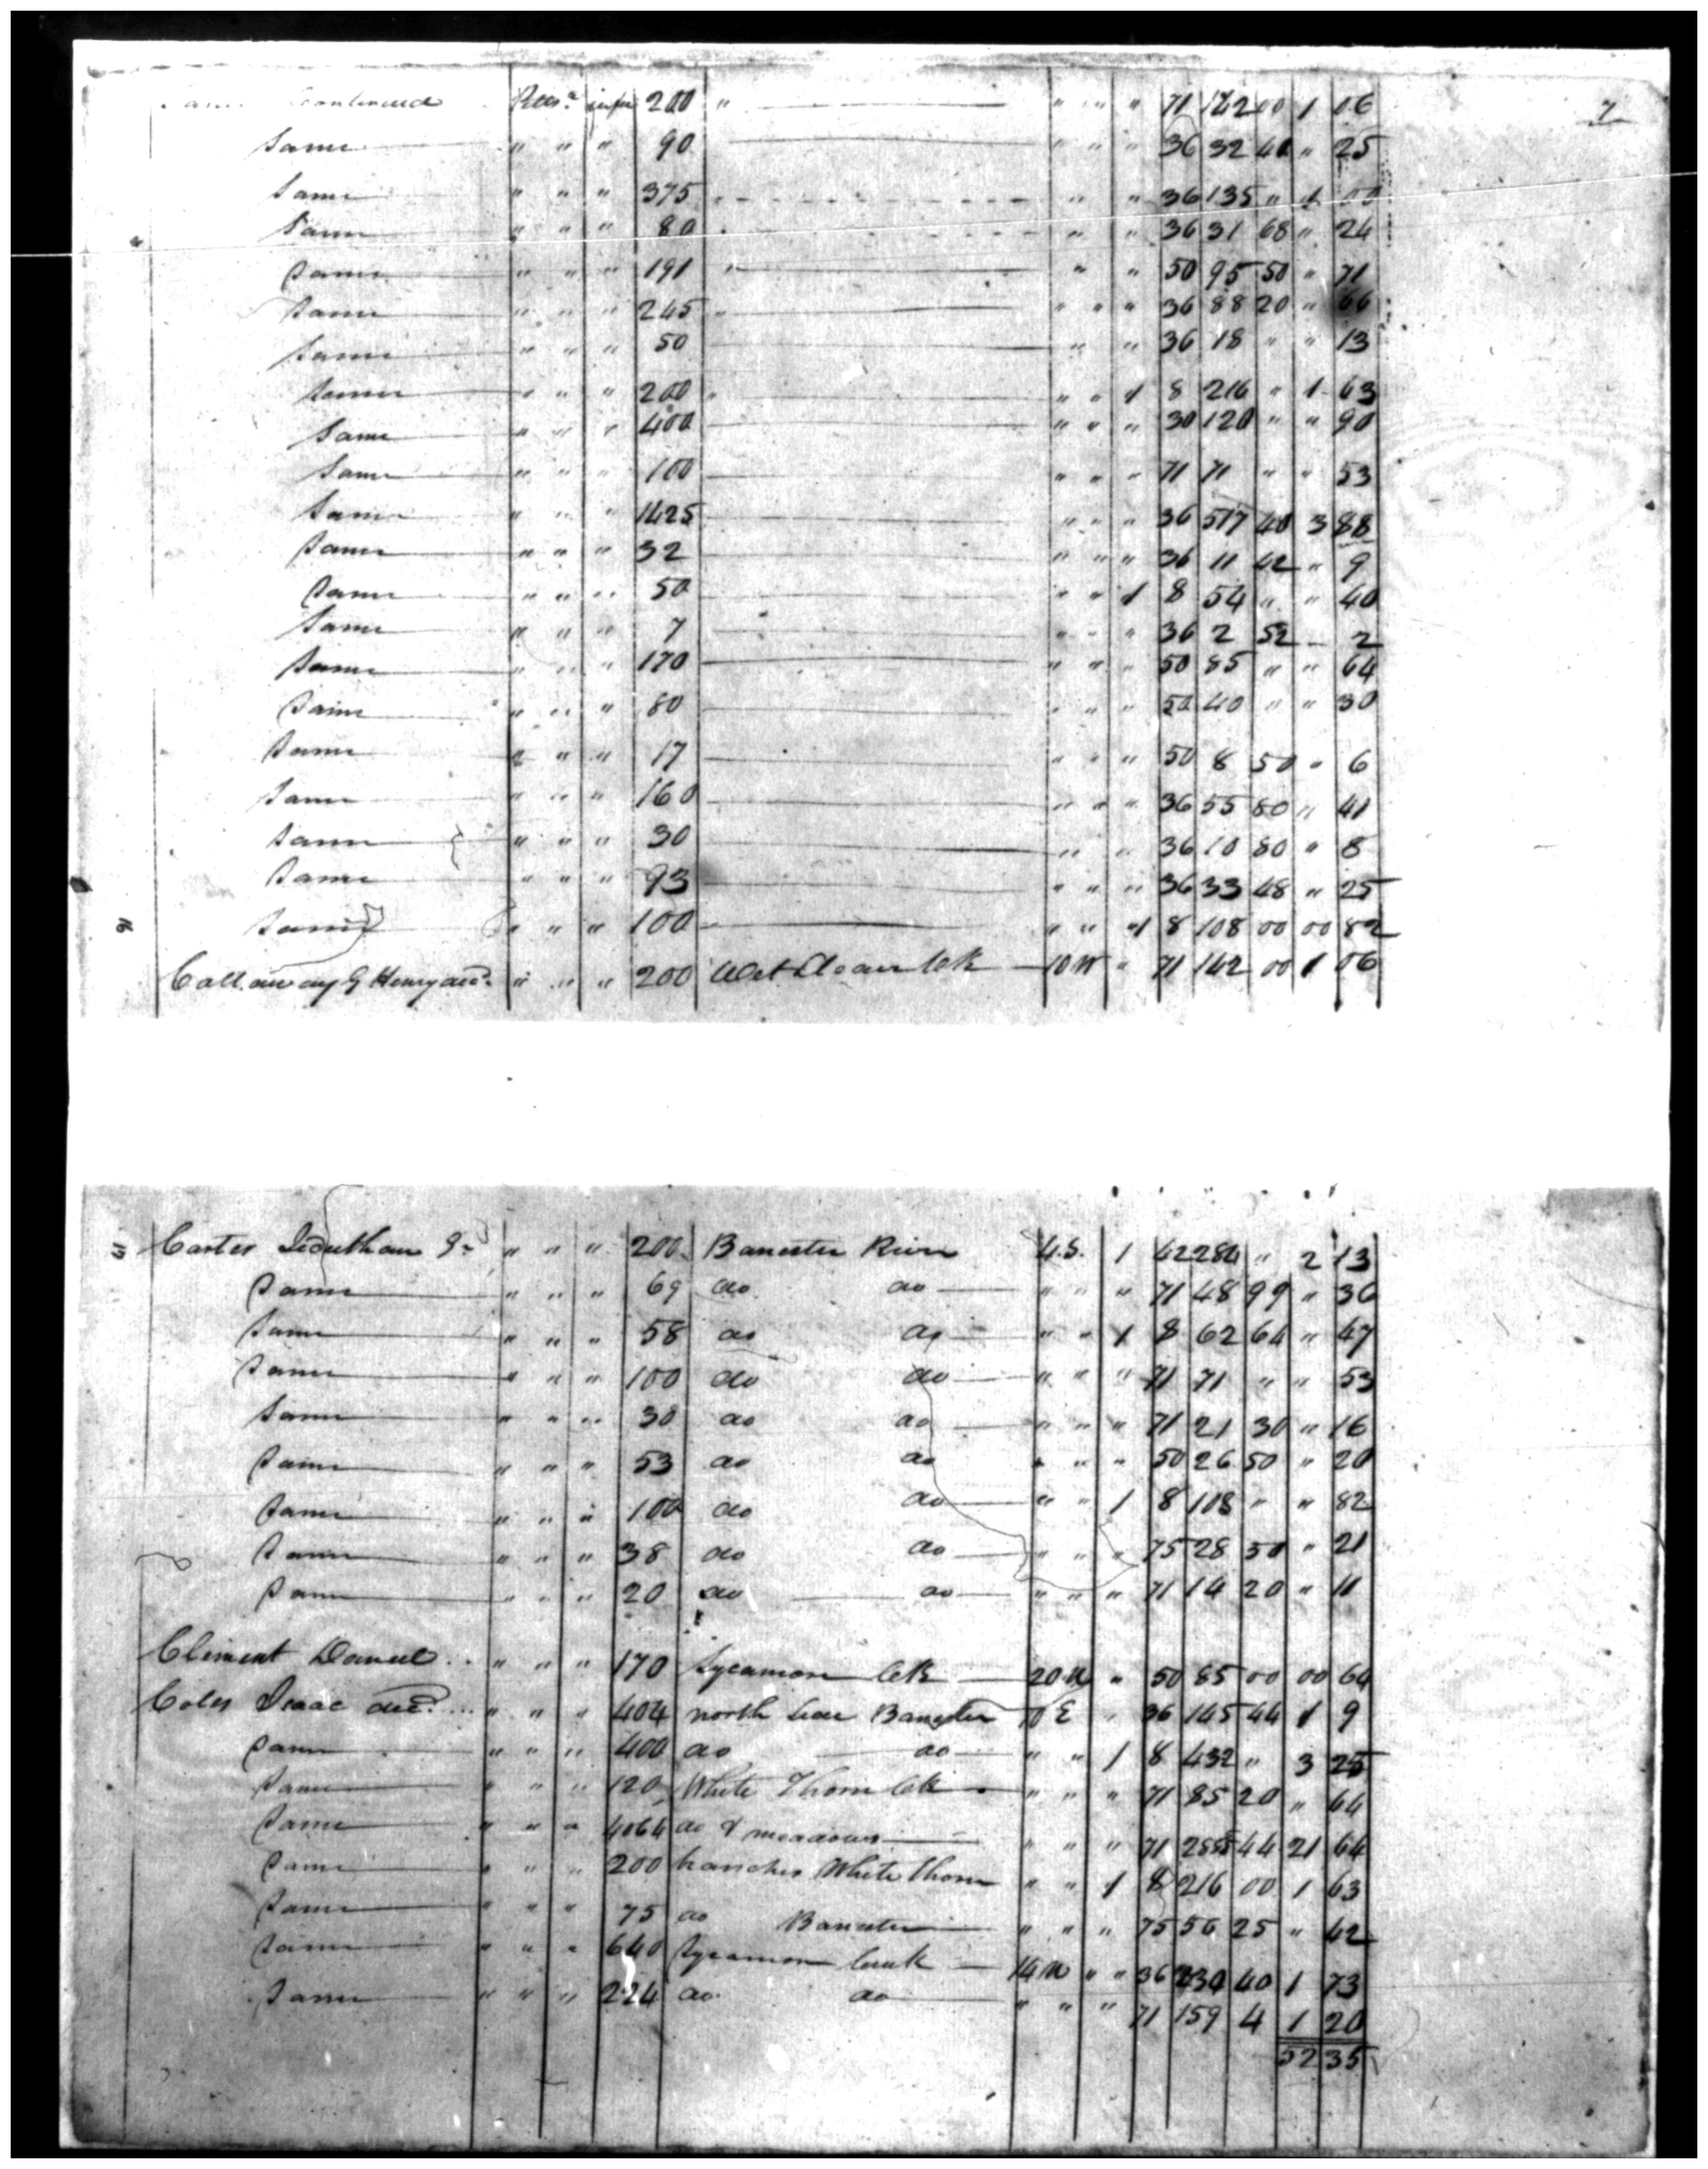 continued 200 " " " " 71 142 00 1 06
7
Same " " " 90 " " " 36 32 40 " 25
Same " " " 375 " " 36 135 " 1 00
Same " " " 80 " " 36 31 68 " 24
Same " " " 191 " " " 50 95 50 " 71
Same " " " 245 " " " " 36 88 20 " 66
Same " " " 50 " " 36 18 " " 13
Same " " " 200 " " " 1 8 216 " 1 63
Same " " " 400 " " " 30 120 " " 90
Same " " " 100 " " " 71 71 " " 53
Same " " " 1425 " " " 36 517 40 3 88
Same " " " 32 " " " 36 11 42 " 9
Same " " " 50 " " 1 8 54 " " 40
Same " " " 7 " " " 36 2 52 2
Same " " " 170 " " " 50 85 " " 64
Same " " " 80 " " " 50 40 " " 30
Same " " " 17 " " " 50 8 50 " 6
Same " " " 160 " " " 36 55 80 " 41
Same " " " 30 " " 36 10 80 " 8
Same " " " 93 " " " 36 33 48 " 25
Same " " " 100 " " 1 8 108 00 00 82
Henry " " " 200 10 W " 71 142 00 1 06
Carter " " " 200 Banester River U.S. 1 42 284 " 2 13
Same " " " 69 do do " " " 71 48 99 " 36
Same " " " 58 do do " " 1 8 62 64 " 47
Same " " " 100 do do " " " 71 71 " " 53
Same " " " 30 do do " " " 71 21 30 " 16
Same " " " 53 do do " " " 50 26 50 " 20
Same " " " 100 do do " " 1 8 108 " " 82
Same " " " 38 do do " " " 75 28 50 " 21
Same " " " 20 do do " " " 71 14 20 " 11
Clement Daniel " " " 170 Sycamore Ck 20 " 50 85 00 00 64
Coles Isaac decd " " " 404 north Banester 10 E " 36 145 44 1 9
Same " " " 400 do do " " 1 8 432 " 3 25
Same " " " 120 White Thorn Ck " " " 71 85 20 " 64
Same " " " 4064 do & meadows " " " 71 2885 44 21 64
Same " " " 200 branches White Thorn " " 1 8 216 00 1 63
Same " " " 75 do Banester " " " 75 56 25 " 42
Same " " " 640 Sycamore Creek 14 " " 36 230 40 1 73
Same " " " 224 do do " " " 71 159 4 1 20
52 35